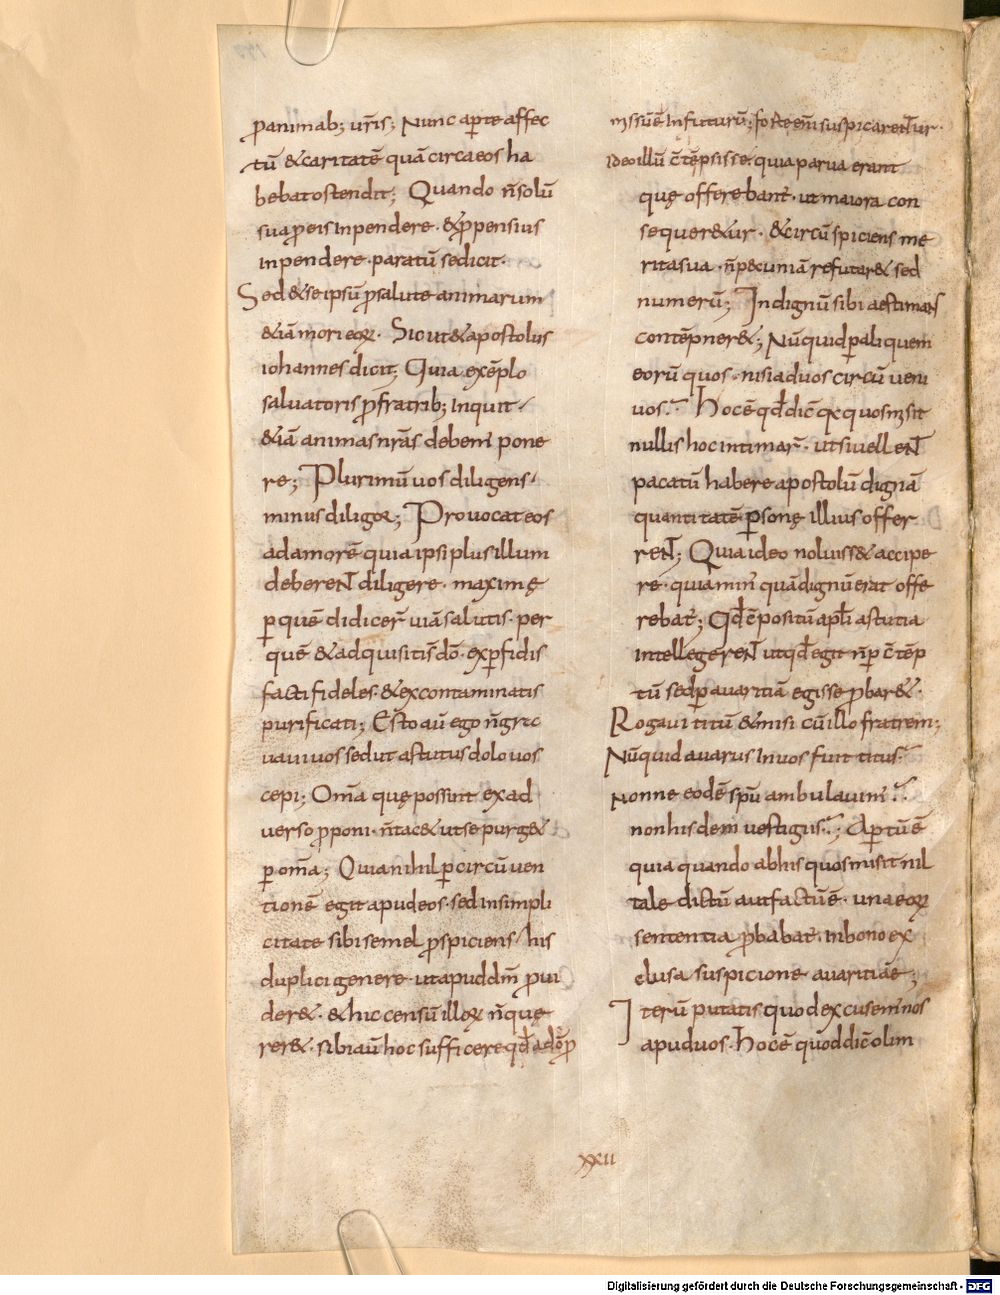 ꝓanimab; ur̅is; Nunc ap̲te affec
tū &caritatē quā circaeos ha
bebat ostendit; Quando n̄ solū
sua ꝓ eis inpendere · & ꝓpensius
inpendere · paratū se dicit ·
Sed & se ipsū ꝓ salute animarum
&iā mori eoꝝ · Sicut & apostolus
iohannes dicit; Quia exēplo
saluatoris ꝓ fratrib; inquit /
&iā animas nr̄as debem' pone
re; Plurimū uos diligens /
minus diligor; Prouocat eos
ad amorē quia ipsi plus illum
deberent diligere · maxime
ꝑ quē didicer̄ uiā salutis · per
quē & adquisiti s̄ dō · ex ꝑfidis
facti fideles · & ex contaminatis
purificati; Esto aū ego n̄ gra
uaui uos sed ut astutus dolo uos
cepi; Om̄a quę possunt ex ad
uerso ꝓponi · n̄ tac& ut se purg&
ꝑ om̄a; Quia nihil ꝑ circūuen
tionē egit apud eos · sed in simpli
citate sibi semel ꝓspiciens / his
duplici genere · ut apud dm̄ ꝓui
der& · & hic censū illoꝝ n̄ quę
rer& · sibi aū hoc sufficere qd̄ a dō ꝓ
missū ē in futurū; forte eni suspicarent̄ur ·
Ideo illū c̄tēpsisse · quia parua erant
quę offerebant · ut maiora con
sequer&ur · & circūspiciens me
rita sua · n̄ pecuniā refutar& sed
numerū; Indignū sibi aestimans
contēpner&; Nūquid ꝑ aliquem
eorū quos · misi ad uos circūueni
uos? Hoc ē qd̄ dic̄ quia quos misit
nullis hoc intimar̄ · ut si uellent
pacatū habere apostolū dignā
quantitatē ꝑsonę illius offer
rent; Quia ideo noluiss& accipe
re · quia min' quā dignū erat offe
rebat'; Qd̄ ē positū apl̄i astutia
intellegerent ut qd̄ egit n̄ ꝑ c̄tēp
tū sed ꝑ auaritiā egisse ꝓbar& ·
Rogaui titū & misi cū illo fratrem;
Nūquid auarus in uos fuit titus?
Nonne eodē spū ambulauim'?
non hisdem uestigiis?; Ap̲tū ē
quia quando ab his quos misit nil
tale dictū aut factū ē · una eoꝝ
sententia ꝓbabat' · in bono ex
clusa suspicione auaritiae;
Iterū putatis quod excusem' nos
apud uos · Hoc ē quod dic̄ olim
xxii
Digitalisierung gefördert durch die Deutsche Forschungsgemeinschaft - DFG